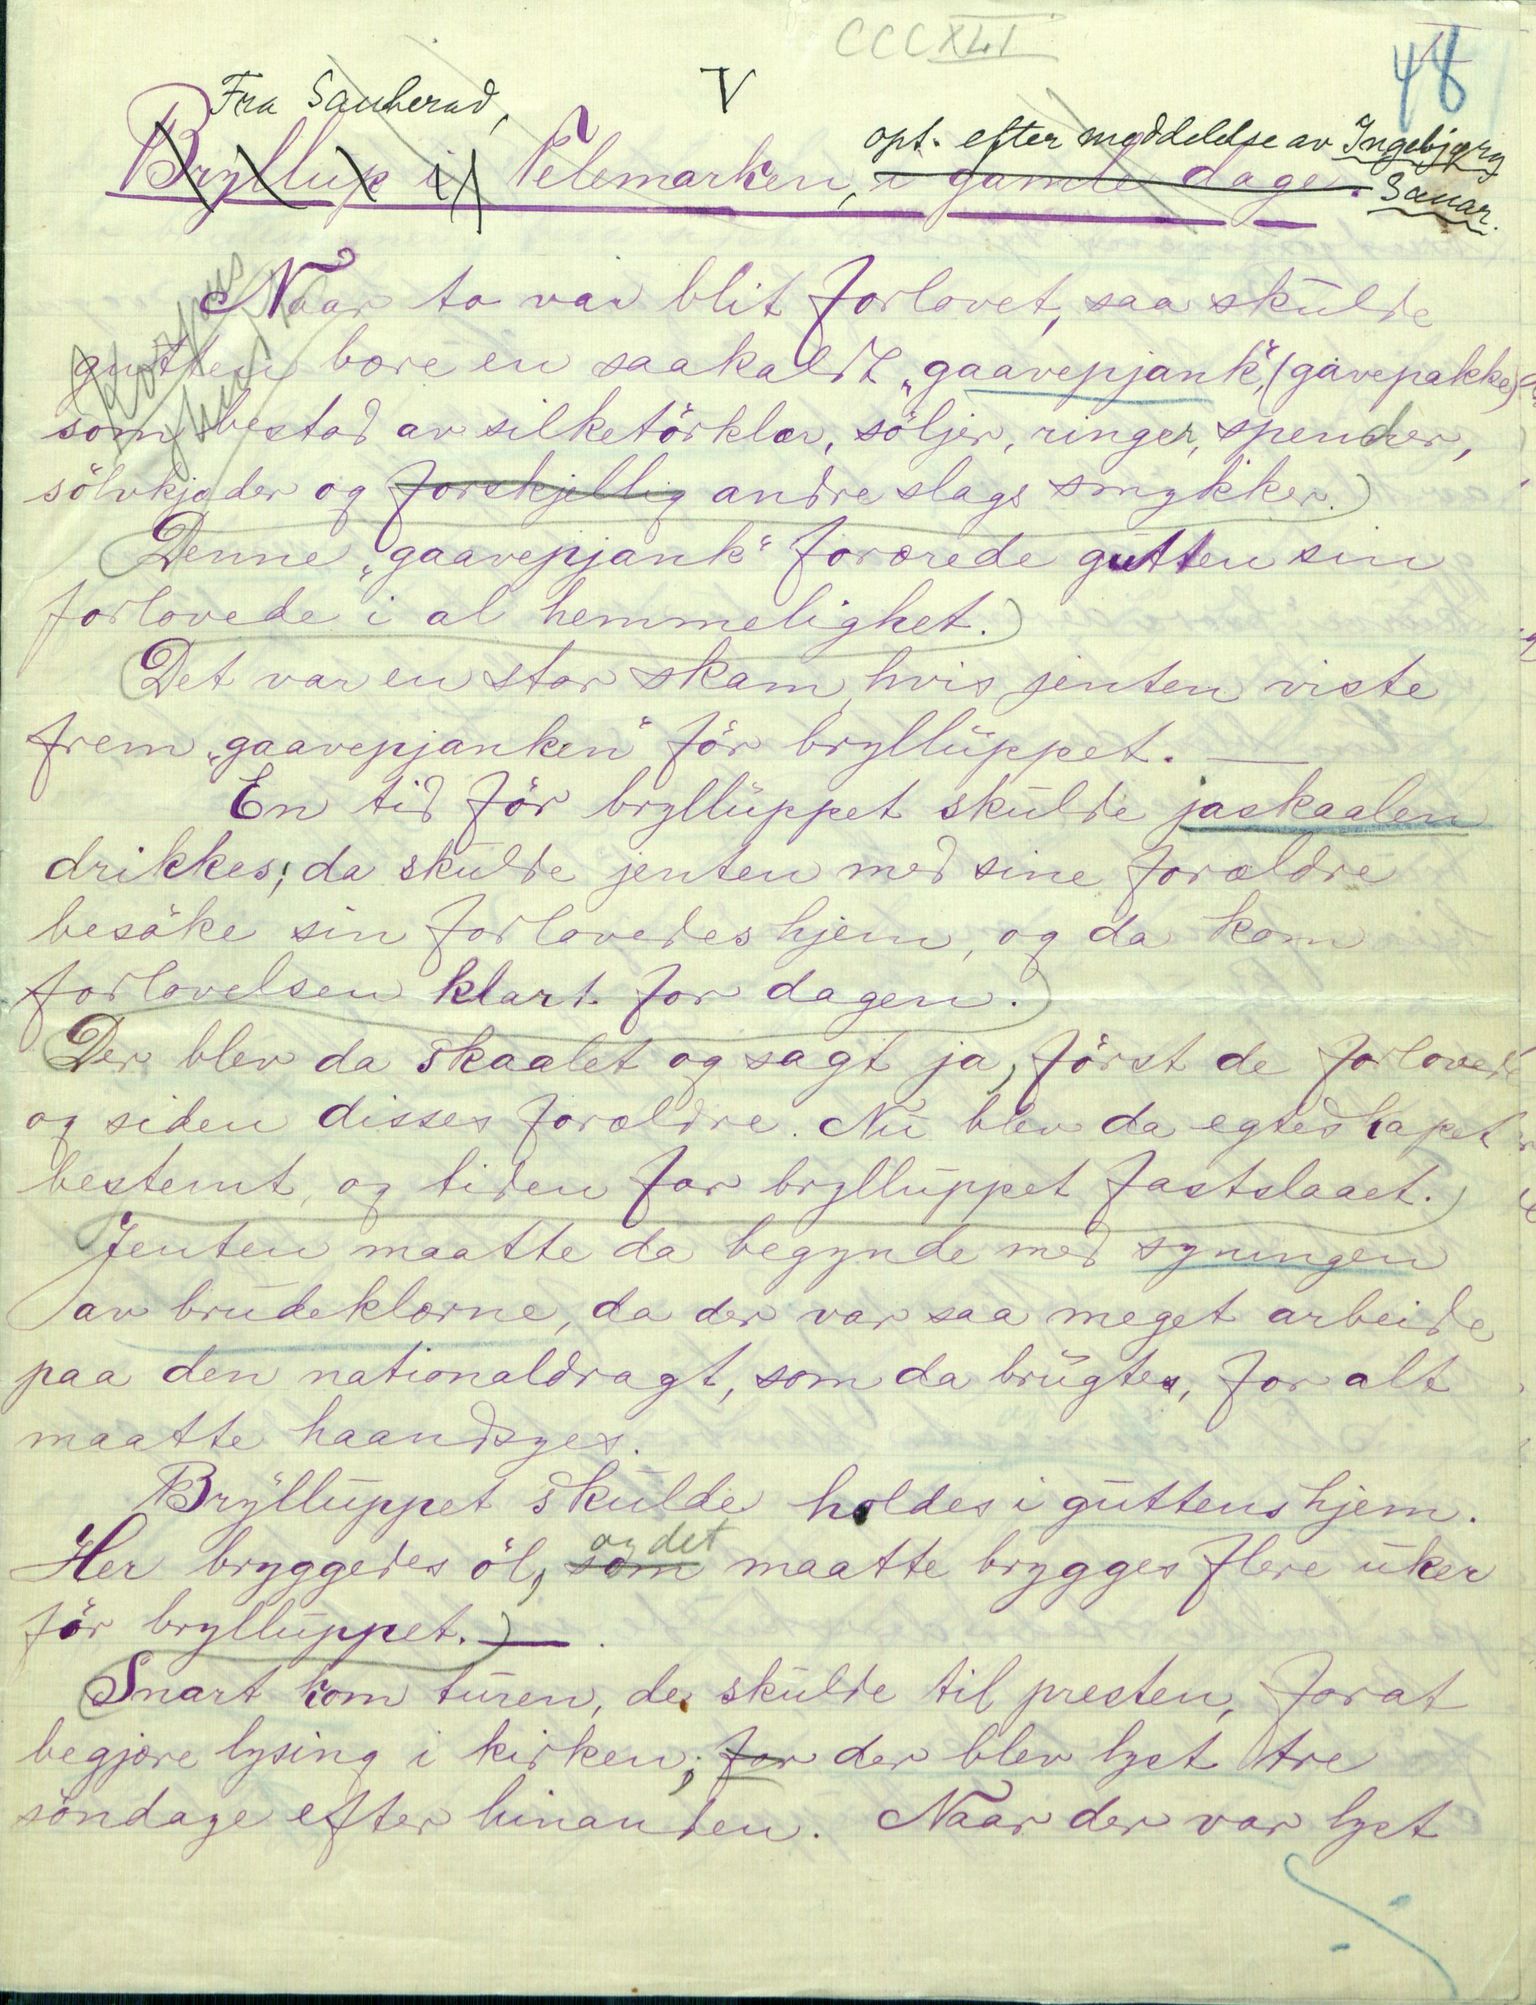 CCCXLI
48
Fra Sauherad,
V
opt. efter meddelelse av Ingebjørg
Sanar.
Bryllup i Telemarken, i gamle dage.
Naar to var blit forlovet, saa skulde
gutten bære en saakaldt "gaavepjank", (gavepakke)
som bestod av silketörklær, söljer, ringer, spender,
sölvkjæder og forskjellig andre slags smykker.
Denne "gaavepjank" forærede gutten sin
forlovede i al hemmelighet.
Det var en stor skam, hvis jenten viste
frem "gaavepjanken" för brylluppet. —
En tid för brylluppet skulde jaskaalen
drikkes; da skulde jenten med sine forældre
besöke sin forlovedes hjem, og da kom
forlovelsen klart for dagen.
Der blev da skaalet og sagt ja, först de forlovede
og siden disses forældre. Nu blev da egteskapet
bestemt, og tiden for brylluppet fastslaaet.
Jenten maatte da begynde med syningen
av brudeklærne, da der var saa meget arbeide
paa den nationaldragt, som da brugtes, for alt
maatte haandsyes.
Brylluppet skulde holdes i guttens hjem.
og det
Her bryggedes öl, som maatte brygges flere uker
för brylluppet. —
Snart kom turen, de skulde til presten, forat
begjære lysing i kirken; for der blev lyst tre
söndage efter hinanden. Naar der var lyst